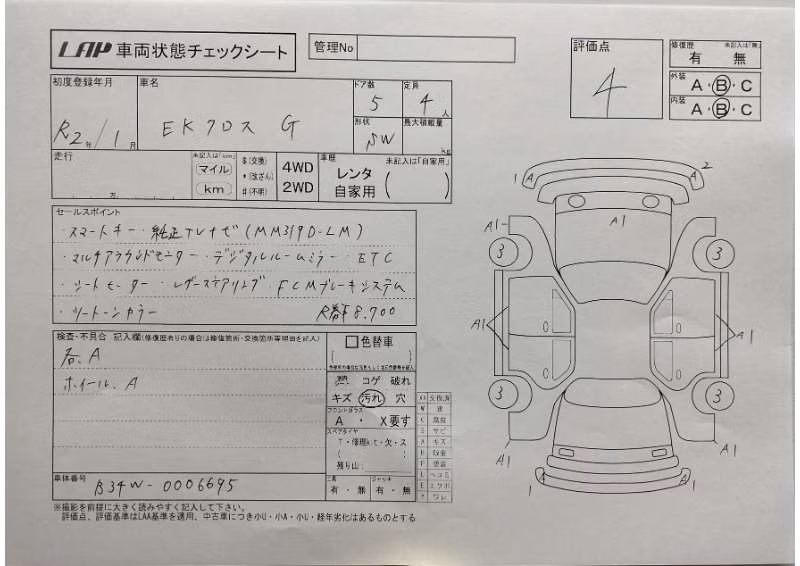 LAP 車両状態チェックシート
管理No
評価点
4
修復歴 未記入は「無」
有 無
外装 A・B・C
内装 A・B・C
初度登録年月
R2年/1月
車名
EKクロス G
ドア数
5
定員
4人
形状
SW
最大積載量
kg
走行
万
未記入は「km」
マイル
km
$(交換)
*(改ざん)
#(不明)
4WD
2WD
車歴 未記入は「自家用」
レンタ
自家用
セールスポイント
・スマートキー・純正TVナビ(MM319D-LM)
・マルチアラウンドモニター・デジタルルームミラー・ETC
・シートヒーター・レザーステアリング・FCMブレーキシステム
・ツートーンカラー R番下8,700
検査・不具合 記入欄(修復歴有りの場合は修復箇所・交換箇所等理由を記入)
右、A
ホイール、A
色替車
コゲ 破れ
キズ 汚れ 穴
フロントガラス
A ・ X要す
スペアタイヤ
T・修理kit・欠・ス
残り山:
工具
有・無
ジャッキ
有・無
車体番号
B34W-0006695
※撮影を前提に大きく読みやすく記入して下さい。
評価点、評価基準はLAA基準を適用、中古車につき小U・小A・小U・経年劣化はあるものとする
1 A
A 2
A1
A1
A1
3
3
A1
A1
3
3
A1
A1
1 A
A 1